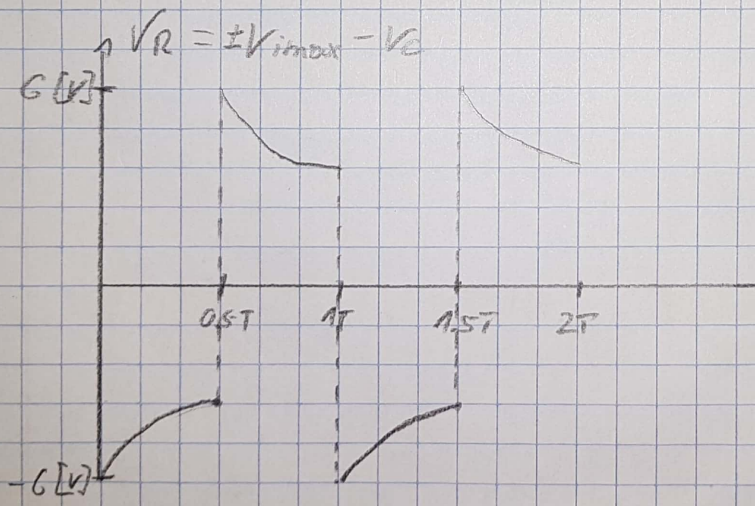 VR = ±Vimax - Vc
6[V]
0,5T 1T 1,5T 2T
-6[V]